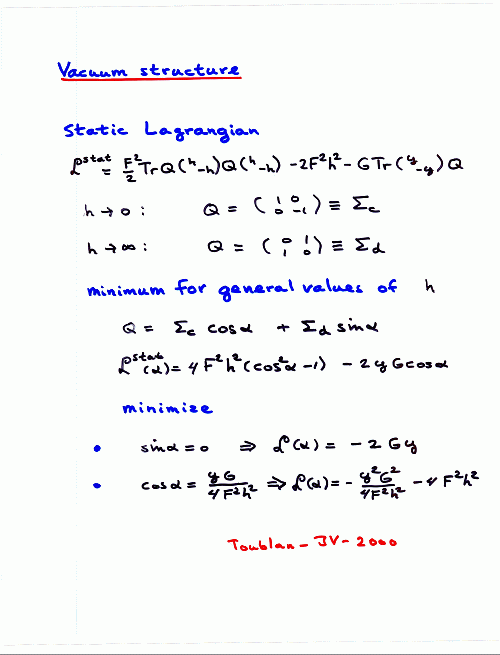 Vacuum structure
Static Lagrangian
ℒ^stat = F²/2 Tr Q (h -h) Q (h -h) - 2F²h² - G Tr (y -y) Q
h → 0 : Q = (1 0 0 -1) ≡ Σc
h → ∞ : Q = (0 1 1 0) ≡ Σd
minimum for general values of h
Q = Σc cosα + Σd sinα
ℒ^stat(α) = 4F²h²(cos²α - 1) - 2yG cosα
minimize
• sinα = 0 ⇒ ℒ(α) = - 2Gy
• cosα = yG/4F²h² ⇒ ℒ(α) = - y²G²/4F²h² - 4F²h²
Toublan - JV - 2000